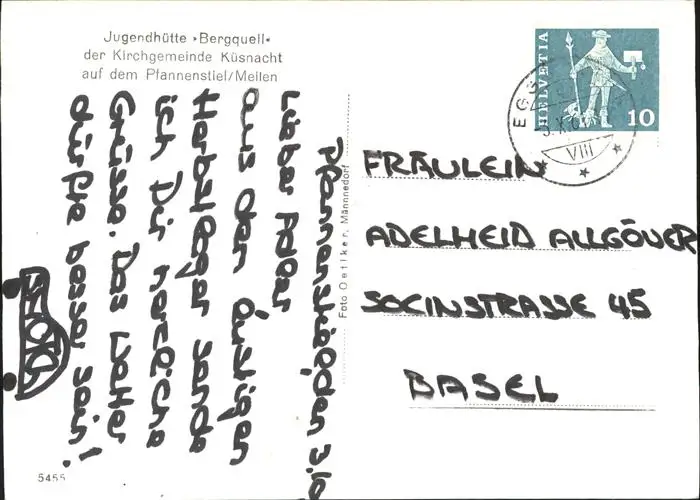 Jugendhütte »Bergquell«
der Kirchgemeinde Küsnacht
auf dem Pfannenstiel/Meilen
HELVETIA
10
EG
VIII
Pfannenstiel, den 3.10
Lieber
aus dem lustigen
Herbstlager sende
ich Dir herzliche
Grüsse. Das Wetter
dürfte besser sein!
Foto Oetiker, Männedorf
FRÄULEIN
ADELHEID ALLGÖWER
SOCINSTRASSE 45
BASEL
5455